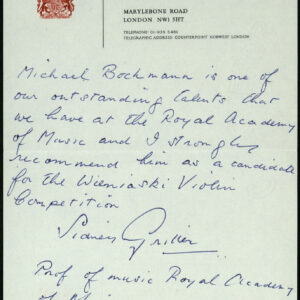 MARYLEBONE ROAD
LONDON NW1 5HT
TELEPHONE 01-935 5461
TELEGRAPHIC ADDRESS COUNTERPOINT NORWEST LONDON
Michael Bochmann is one of
our outstanding talents that
we have at the Royal Academy
of Music and I strongly
recommend him as a candidate
for the Wieniaski Violin
Competition
Sidney Griller
Prof of music Royal Academy
of